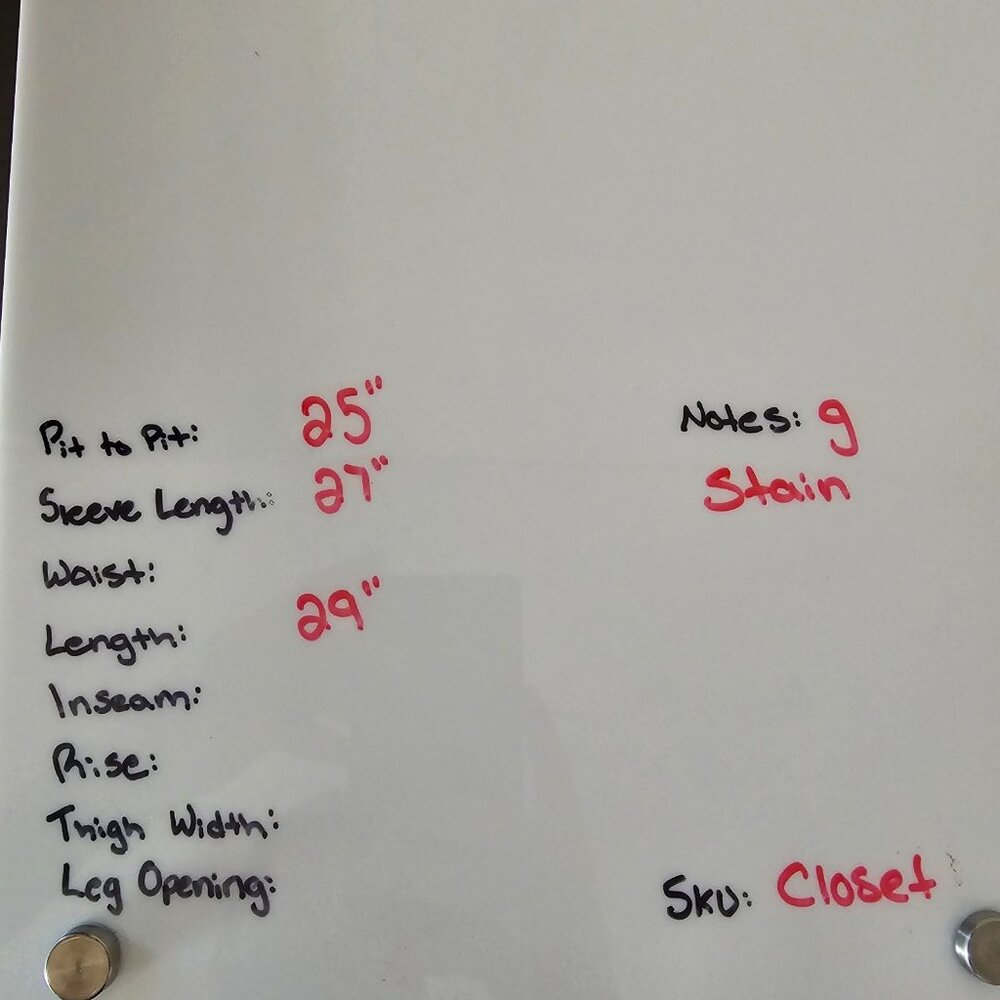 Pit to Pit: 25"
Sleeve Length: 27"
Waist:
Length: 29"
Inseam:
Rise:
Thigh Width:
Leg Opening:
Notes: 9
Stain
SKU: Closet